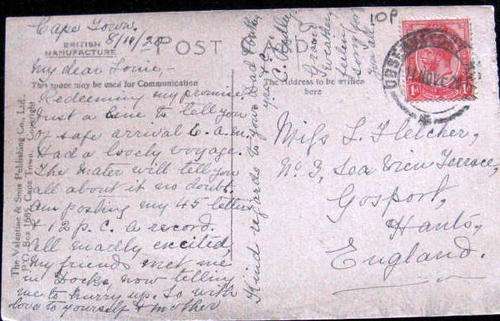 Cape Town,
8/10/20
BRITISH
MANUFACTURE
POST CARD
10P
My dear Louie,
This space may be used for Communication
Redeeming my promise
Just a line to tell you
of safe arrival 6 a.m.
Had a lovely voyage.
The water will tell you
all about it no doubt.
Am posting my 45 letters
& 12 p.c. A record.
All madly excited,
my friends met me
in Docks, now telling
me to hurry up. So with
love to yourself & mother
Kind regards to your Dad
The Valentine & Sons Publishing Co., Ltd.,
P.O. Box 1685, Cape Town. Copyright
The Address to be written
here
Miss L. Fletcher,
No 3, Sea View Terrace,
Gosport,
Hants,
England.